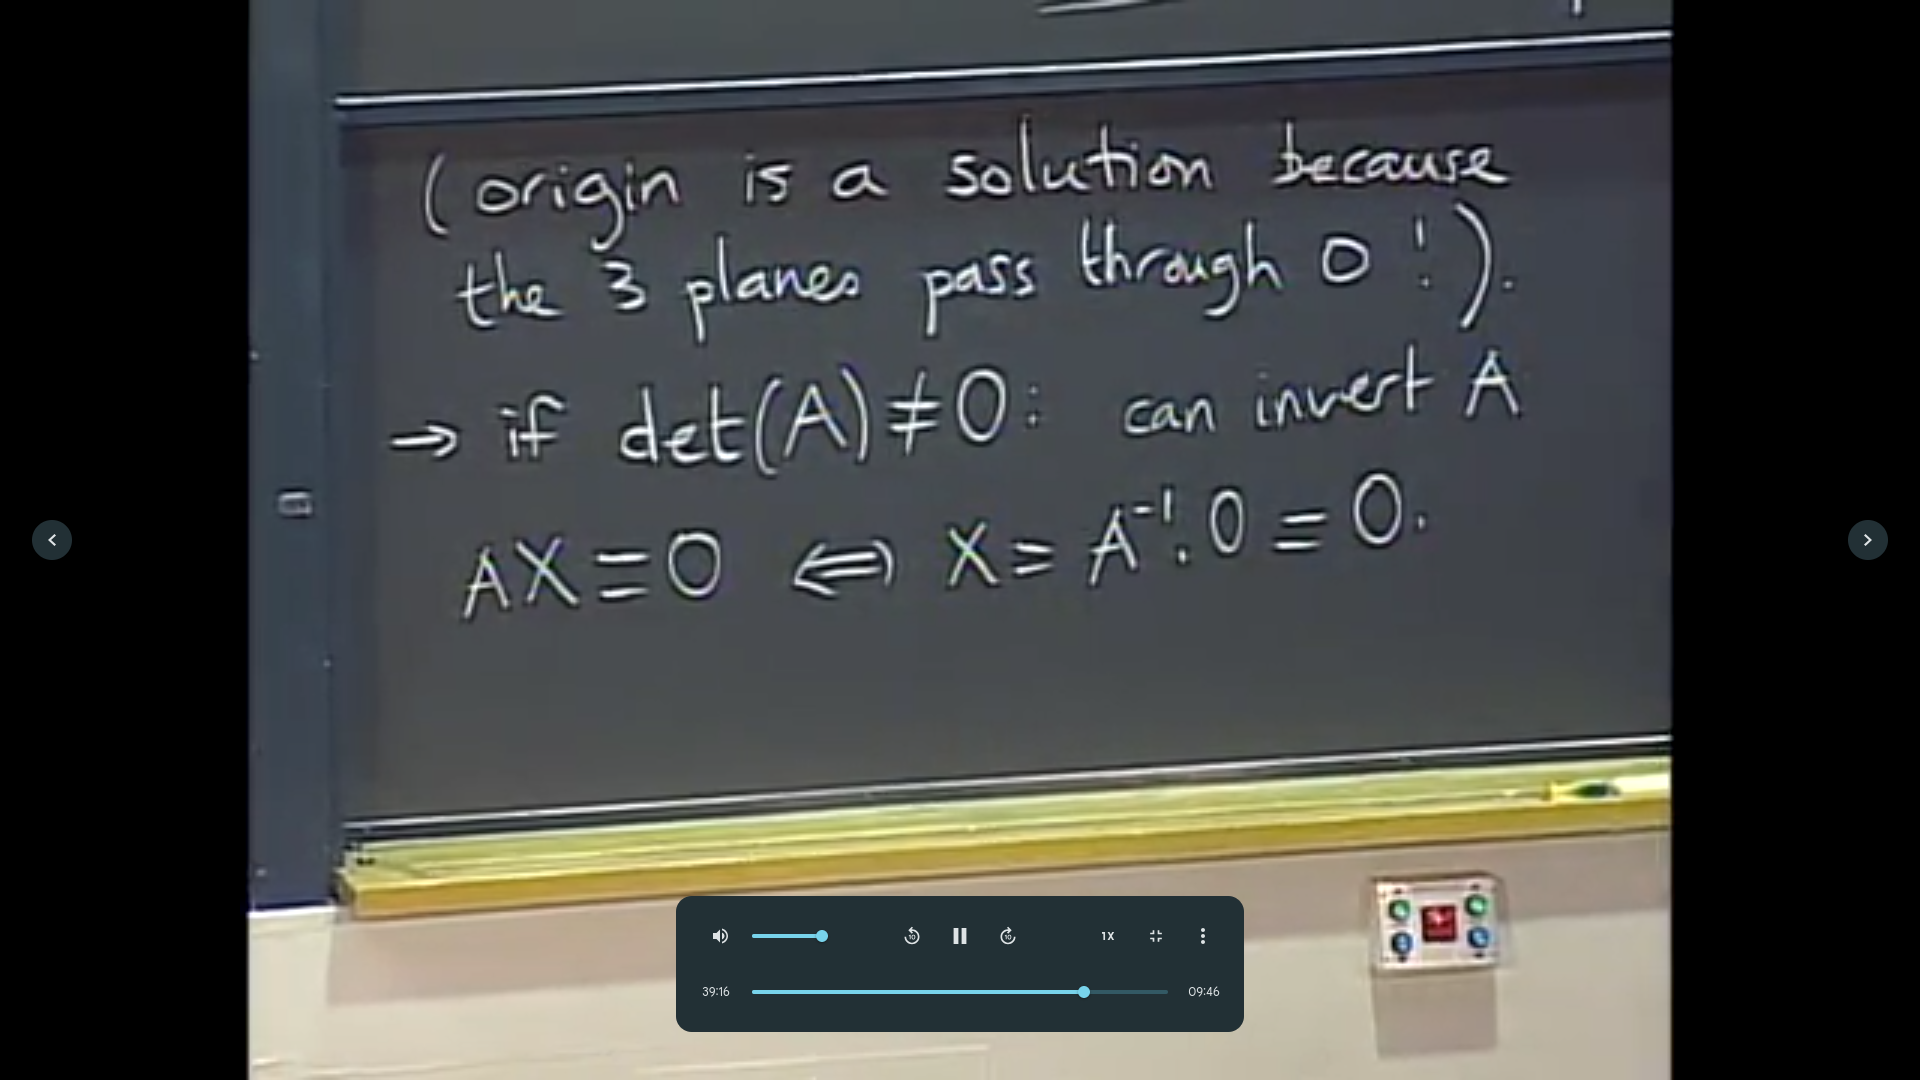 (origin is a solution because
the 3 planes pass through 0!).
→ if det(A)≠0: can invert A
AX=0 ⇔ X=A⁻¹.0=0.
10
10
1X
39:16
09:46